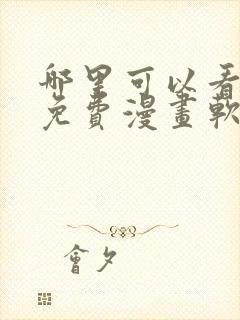 哪里可以看
免費漫畫軟
會夕